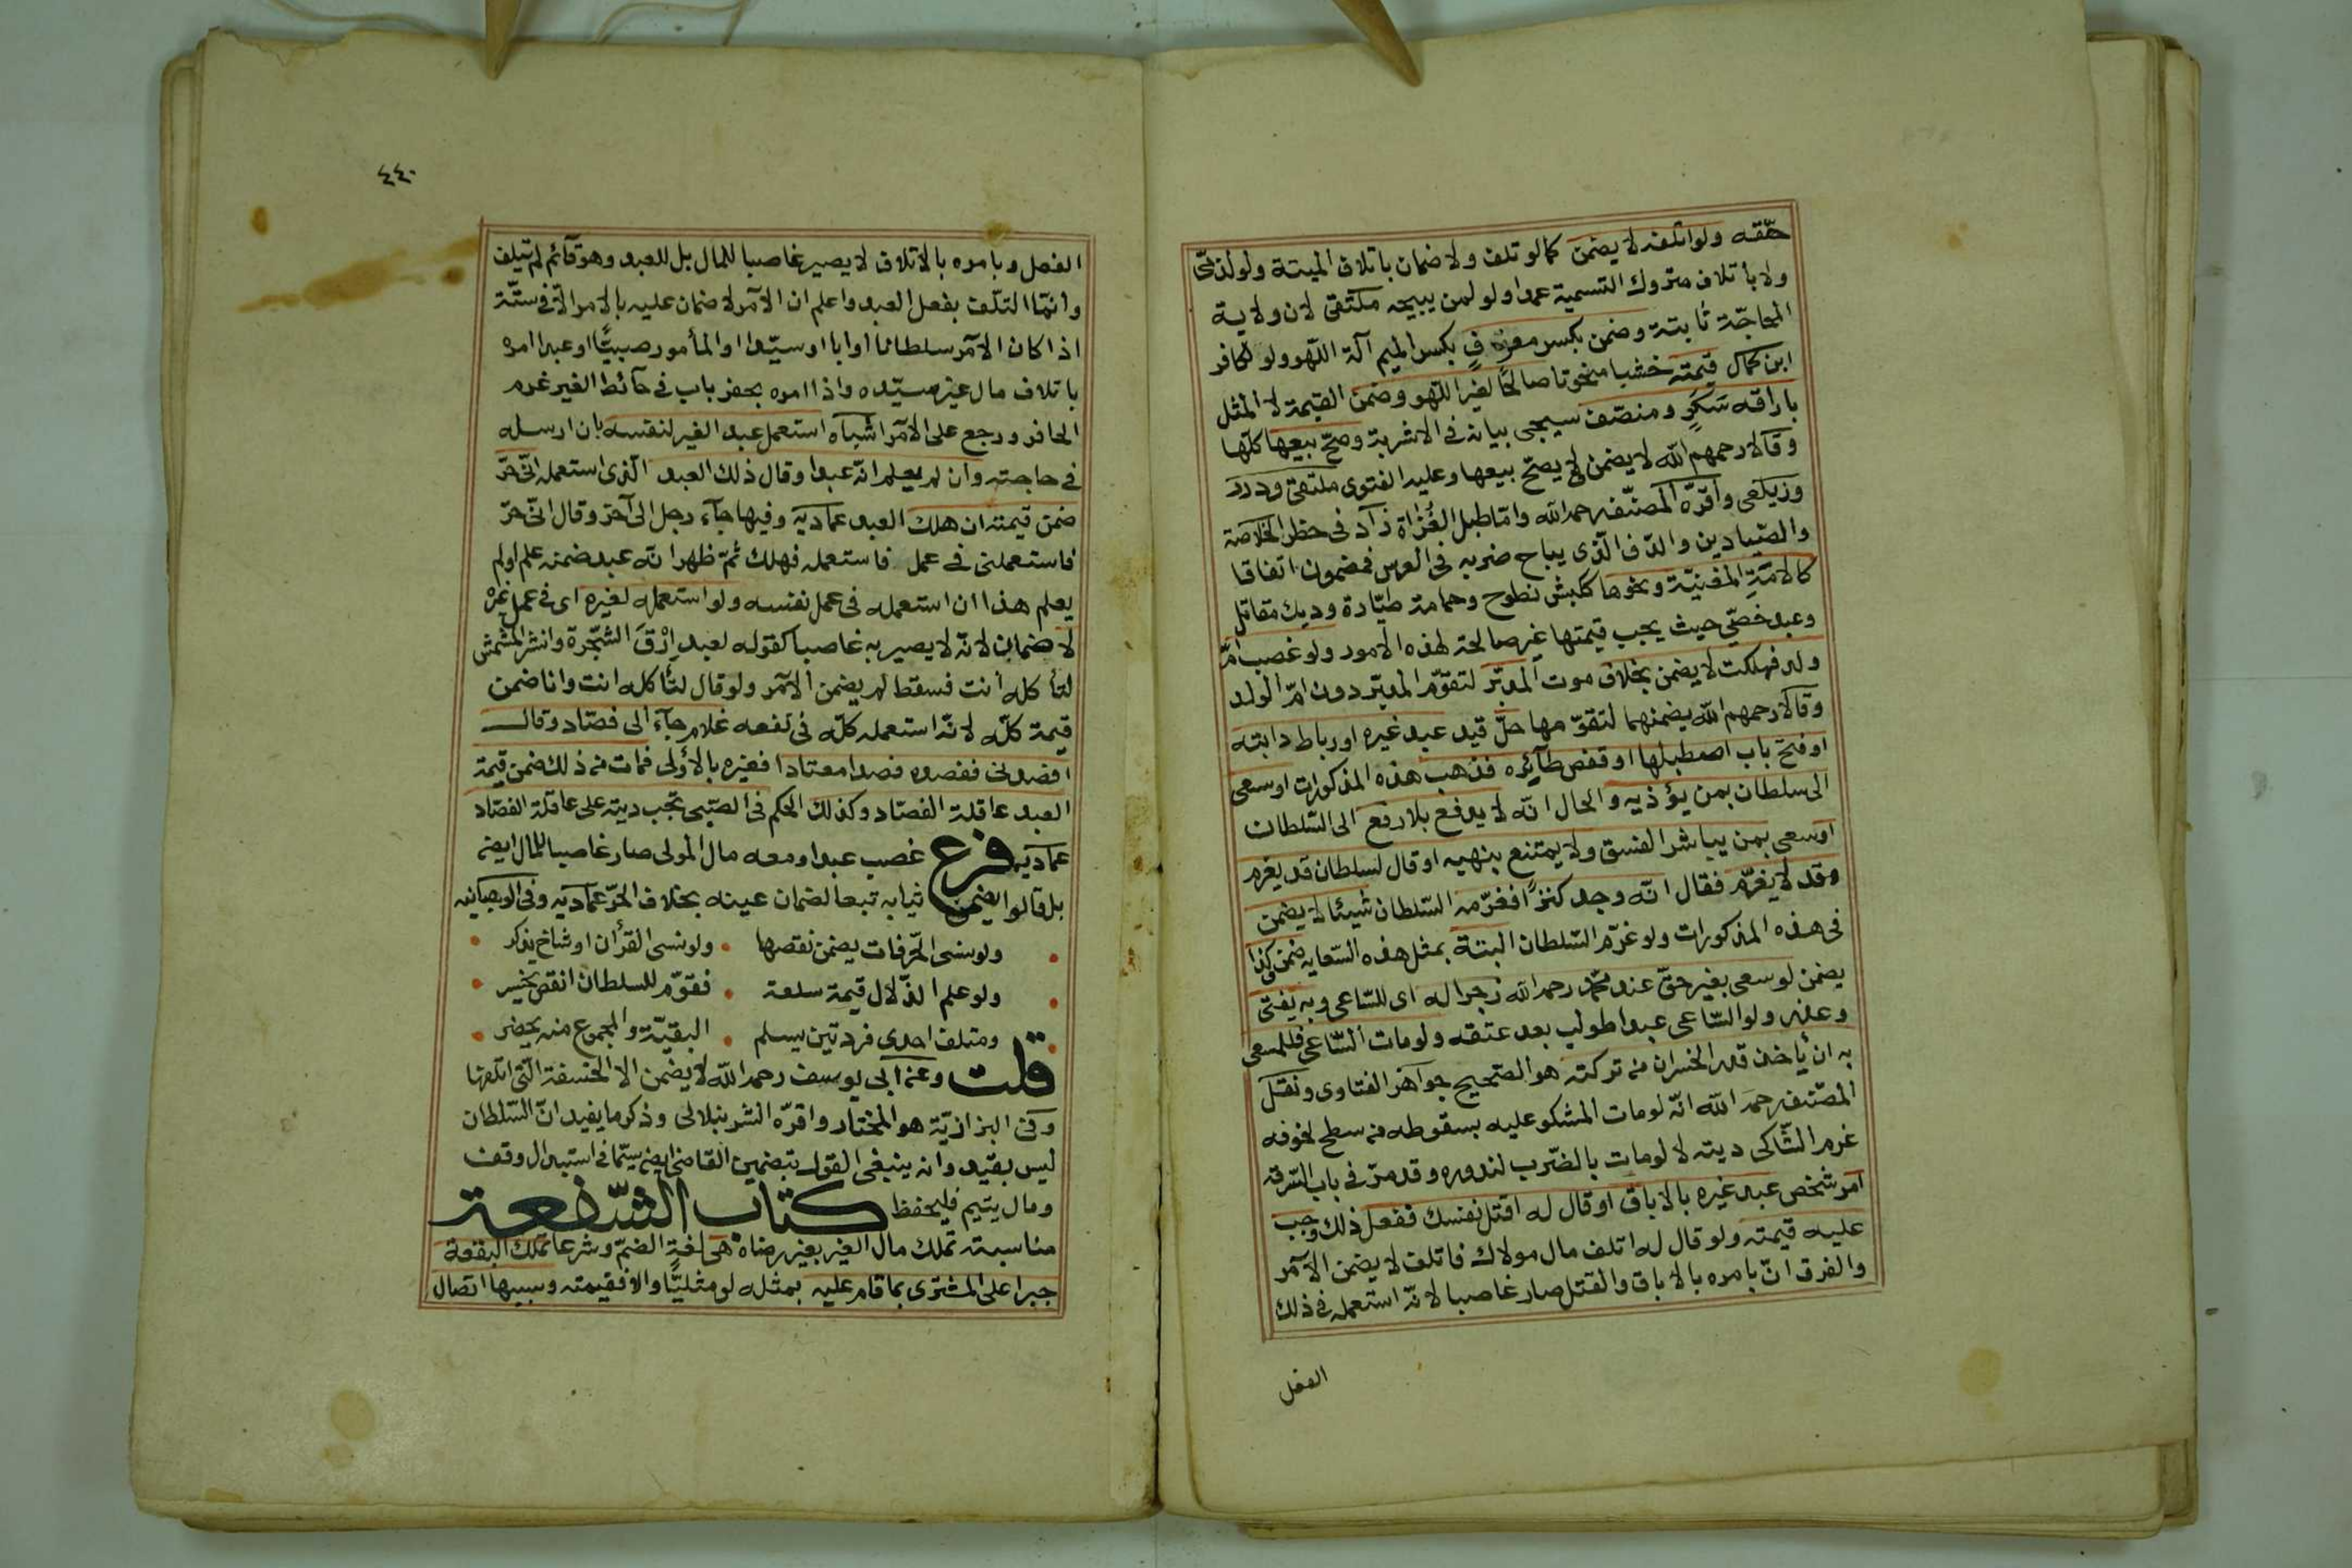 حقّقه ولو اتلفه لا يضمن كما لو تلف ولا ضمان باتلاف الميتة ولو لذمّى
ولا بأتلاف متروك التسمية عمدا ولو لمن يبيحه ملتقى لان ولاية
المحاجّة ثابتة وضمن بكسر معزف بكسر الميم آلة اللهو ولو لكافر
ابن كمال قيمته خشبا منحوتا صالحًا لغير اللهو وضمن القيمة لا المثل
باراقه سَكَرٍ ومنصّف سيجى بيانه فى الاشربة وصحّ بيعها كلّها
وقالا رحمهم الله لا يضمن لا يصحّ بيعها وعليه الفتوى ملتقى ودرر
وزيلعى واقرّه المصنّف رحمه الله وامّا طبل الغُزاة زاد فى حظر الخلاصة
والصّيادين والدّف الّذى يباح ضربه فى العرس فمضمون اتفاقا
كالامَةِ المغنيّة ونحوها ككبش نطوح وحمامة طيّارة وديك مقاتل
وعبد خصّى حيث يجب قيمتها غير صالحة لهذه الامور ولو غصب امّ
ولد فهلكت لا يضمن بخلاف موت المدبّر لتقوّم المدبّر دون امّ الولد
وقالا رحمهم الله يضمنهما لتقوّمهما حلّ قيد عبد غيره او رباط دابته
او فتح باب اصطبلها او قفص طآئره فذهب هذه المذكورات او سعى
الى سلطان بمن يؤذيه والحال انّه لا يدفع بلا رفع الى السّلطان
او سعى بمن يباشر الفسق ولا يمتنع بنهيه او قال لسلطان قد يغرم
وقد لا يغرّم فقال انّه وجد كنزًا فغرّمه السّلطان شيئا لا يضمن
فى هذه المذكورات ولو غرّم السّلطان البتة بمثل هذه السّعايه ضمن وكذا
يضمن لو سعى بغير حقّ عند محمّد رحمه الله زجرا له اى للسّاعى وبه يفتى
وعزّر ولو السّاعى عبدا طولب بعد عتقه ولو مات السّاعى فللمسعى
به ان يأخذ قدر الخسران من تركته هو الصّحيح جواهر الفتاوى ونقل
المصنّف رحمه الله انّه لو مات المشكو عليه بسقوطه من سطح لخوفه
غرم الشّاكى ديته لا لو مات بالضّرب لندوره وقد مرّ فى باب السّرقه
آمر شخص عبد غيره بالاباق او قال له اقتل نفسك ففعل ذلك وجب
عليه قيمته ولو قال له اتلف مال مولاك فاتلف لا يضمن الآمر
والفرق انّ بامره بالاباق والقتل صار غاصبا لانّه استعمله فى ذلك
الفعل
٤٤٠
الفعل وبامره بالاتلاف لا يصير غاصبا للمال بل للعبد وهو قآئم لم يتلف
وانّما التلّف بفعل العبد واعلم ان الآمر لا ضمان عليه بالامر الّا فى ستّة
اذا كان الآمر سلطانا او ابا او سيّدا او المأمور صبيًّا او عبدا امره
باتلاف مال غير سيّده واذا امره بحفر باب فى حآئط الغير غرم
الحافر ورجع على الآمر اشباه استعمل عبد الغير لنفسه بان ارسله
فى حاجته وان لم يعلم انّه عبد او قال ذلك العبد الّذى استعمله انّى حرّ
ضمن قيمته ان هلك العبد عماديه وفيها جآء رجل الى آخر وقال انّى حرّ
فاستعملنى فى عمل فاستعمله فهلك ثمّ ظهر انّه عبد ضمنه علم او لم
يعلم هذا ان استعمله فى عمل نفسه ولو استعمله لغيره اى فى عمل غيره
لا ضمان لانّه لا يصير به غاصبا كقوله لعبد اِرْقَ الشّجرة وانثر المشمش
لتأكله انت فسقط لم يضمن الآمر ولو قال لتأكله انت وانا ضمن
قيمة كلّه لانّه استعمله كلّه فى نفعه غلام جآء الى فصّاد وقال
افصدنى ففصده فصدا معتادا فغيره بالأولى فمات من ذلك ضمن قيمة
العبد عاقلة الفصّاد وكذلك الحكم فى الصّبى تجب ديته على عاقلة الفصّاد
عماديه فرع غصب عبدا ومعه مال المولى صار غاصبا للمال ايضا
بل قالوا يضمن ثيابه تبعا لضمان عينه بخلاف الحرّ عماديه وفى الوهبانيه
ولو نسى الحرّفات يضمن نقصها • ولو نسى القرأن او شاخ يذكر
ولو علم الدّلال قيمة سلعة • فقوّم للسلطان انقص يخسر
ومتلف احدى فردتين يسلم • البقيّة والمجموع منه يحضر
قلت وعن ابى يوسف رحمه الله لا يضمن الا الخسفة الّتى اتلفها
وفى البزازيّة هو المختار واقرّه الشرنبلالى وذكر ما يفيد انّ السّلطان
ليس بقيد وانه ينبغى القول بتضمين القاضى ايضا سيّما فى استبدال وقف
ومال يتيم فليحفظ كتاب الشّفعة
مناسبته تملك مال الغير بغير رضاه هى لغة الضمّ وشرعا تملّك البقعة
جبرا على المشترى بما قام عليه بمثله لو مثليًّا والا فقيمته وسببها اتصال